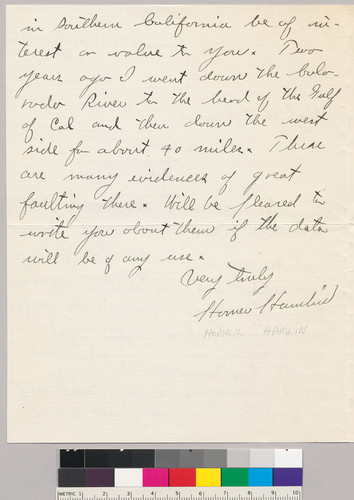 in Southern California be of in-
terest or value to you. Two
years ago I went down the Colo-
rado River to the head of the Gulf
of Cal and then down the west
side for about 40 miles. There
are many evidences of great
faulting there. Will be pleased to
write you about them if the data
will be of any use.
Very truly
Homer Hamlin
HOMER HAMLIN
METRIC 1 2 3 4 5 6 7 8 9 10